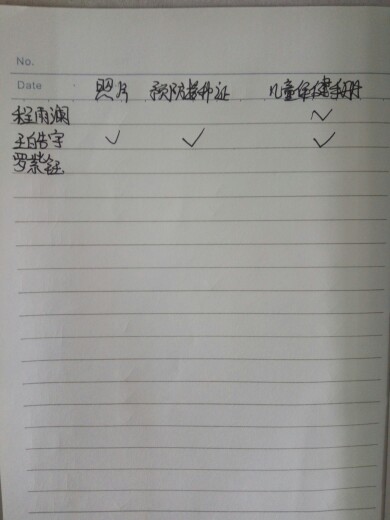 No.
Date 照片 预防接种证 儿童保健手册
程雨澜 ✓
王皓宇 ✓ ✓ ✓
罗紫钰